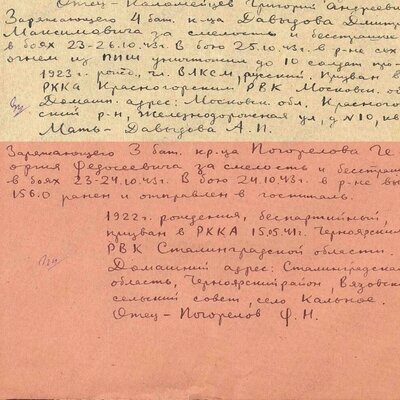 Отец – Паламейцев Григорий Андреевич
Заряжающего 4 бат. кр-ца Давыдова Дмитр
Максимовича за смелость и бесстрашие
в боях 23-26.10.43г. В бою 25.10.43г. в р-не
огнем из ППШ уничтожил до 10 солдат
1923 г. рожд., чл. ВЛКСМ, русский. Призван в
РККА Красногорским РВК Московск. об
Домашн. адрес: Московск. обл., Красногор
ский р-н, Железнодорожная ул., д №10, кв
Мать – Давыдова А.П.
Заряжающего 3 бат. кр-ца Погорелова Ге
оргия Федосеевича за смелость и бесстраш
в боях 23-24.10.43г. В бою 24.10.43г. в р-не выс
156.0 ранен и отправлен в госпиталь.
1922 г. рождения, беспартийный,
призван в РККА 15.05.41г. Черноярским
РВК Сталинградской области.
Домашний адрес: Сталинградская
область, Черноярский район, Вязовский
сельский совет, село Кальное.
Отец – Погорелов Ф.Н.